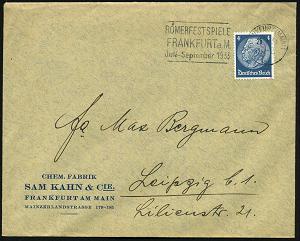 RÖMERFESTSPIELE
FRANKFURT a.M.
Juli-September 1933
4
Deutsches Reich
Fa Max Bergmann
Leipzig C.1
Lilienstr. 21.
CHEM. FABRIK
SAM KAHN & CIE.
FRANKFURT AM MAIN
MAINZERLANDSTRASSE